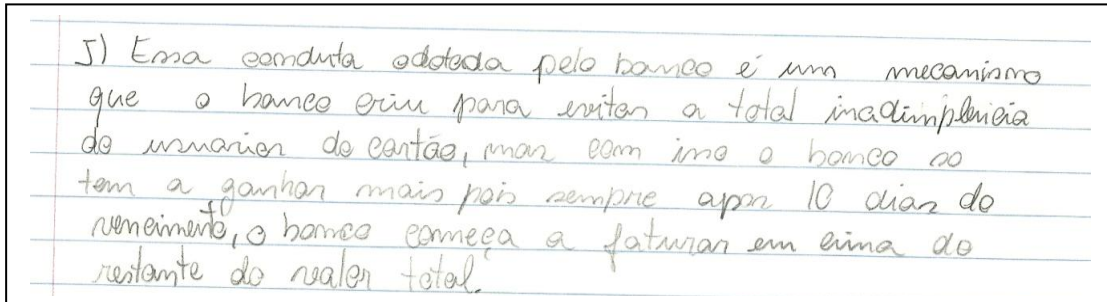 J) Essa conduta adotada pelo banco é um mecanismo
que o banco criu para evitar a total inadimplência
do usuarior do cartão, mas com isso o banco so
tem a ganhar mais pois sempre apos 10 dias do
vencimento, o banco começa a faturar em cima do
restante do valor total.